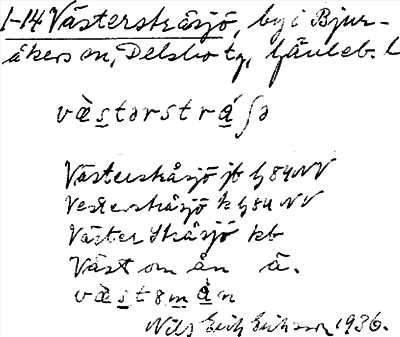 1-14 Västerstråsjö, by i Bjur-
åkers sn, Delsbo tg, Gävleb. l
væ̀s̲tərstrá̲ʃə
Västerstråsjö jb h 84 NV
Vesterstråsjö k h 84 NV
Väster Stråsjö kb
Väst om ån ä.
væ̀s̲t ɞm̲ å̀n
Nils Erik Eriksson 1936.